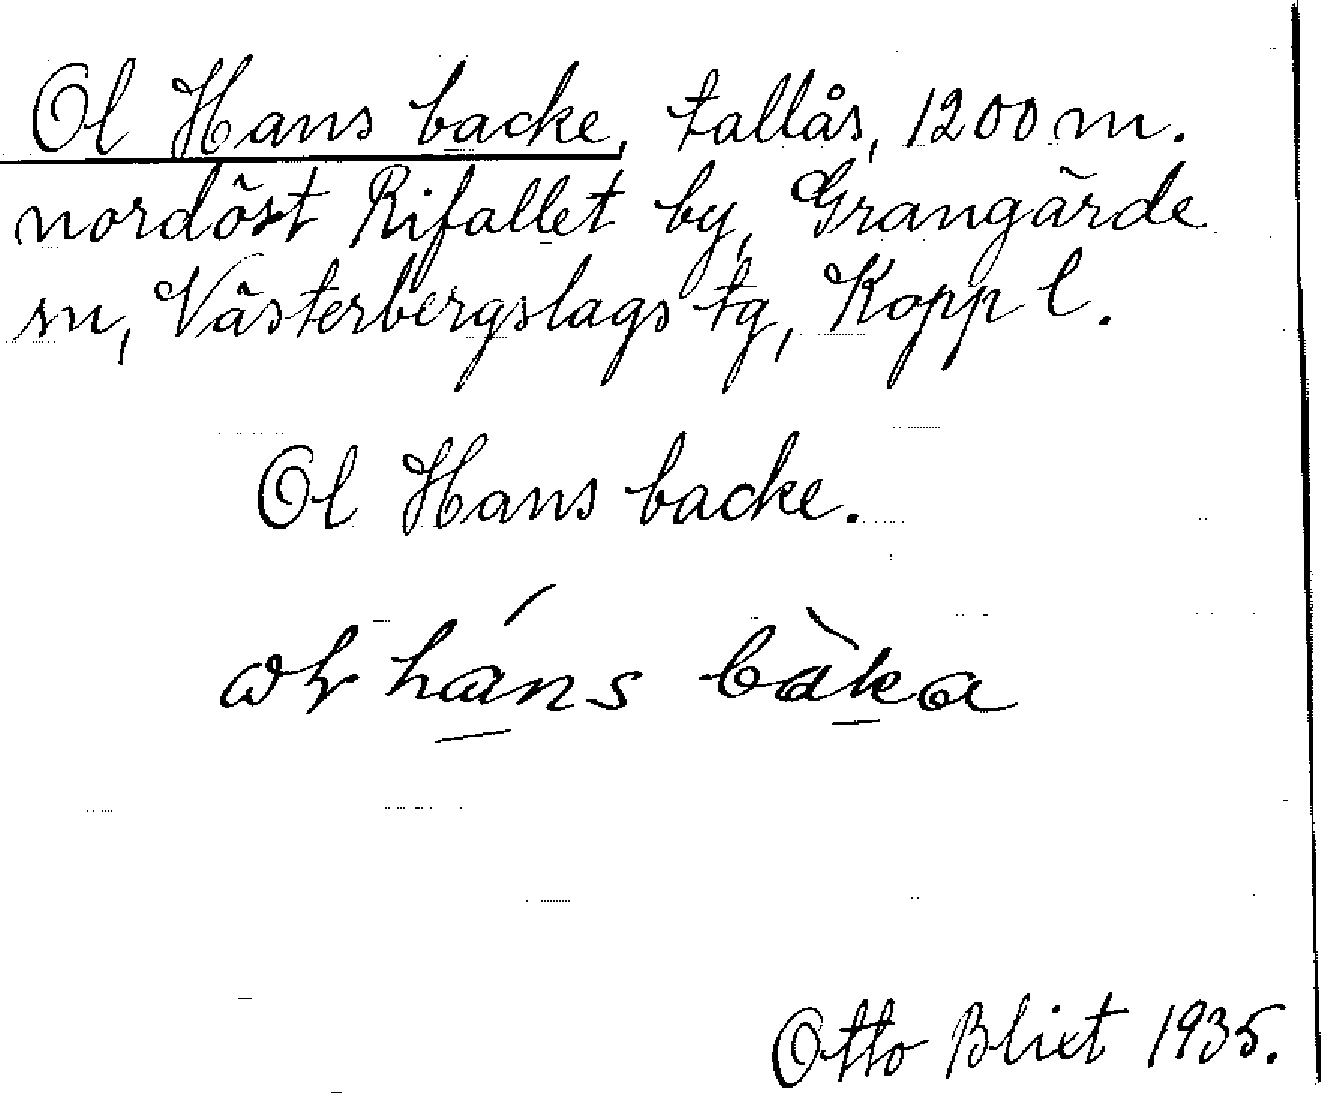 Ol Hans backe, tallås, 1200 m.
nordöst Rifallet by, Grangärde
sn, Västerbergslags tg, Kopp l.
Ol Hans backe.
háns bàka
Otto Blixt 1935.